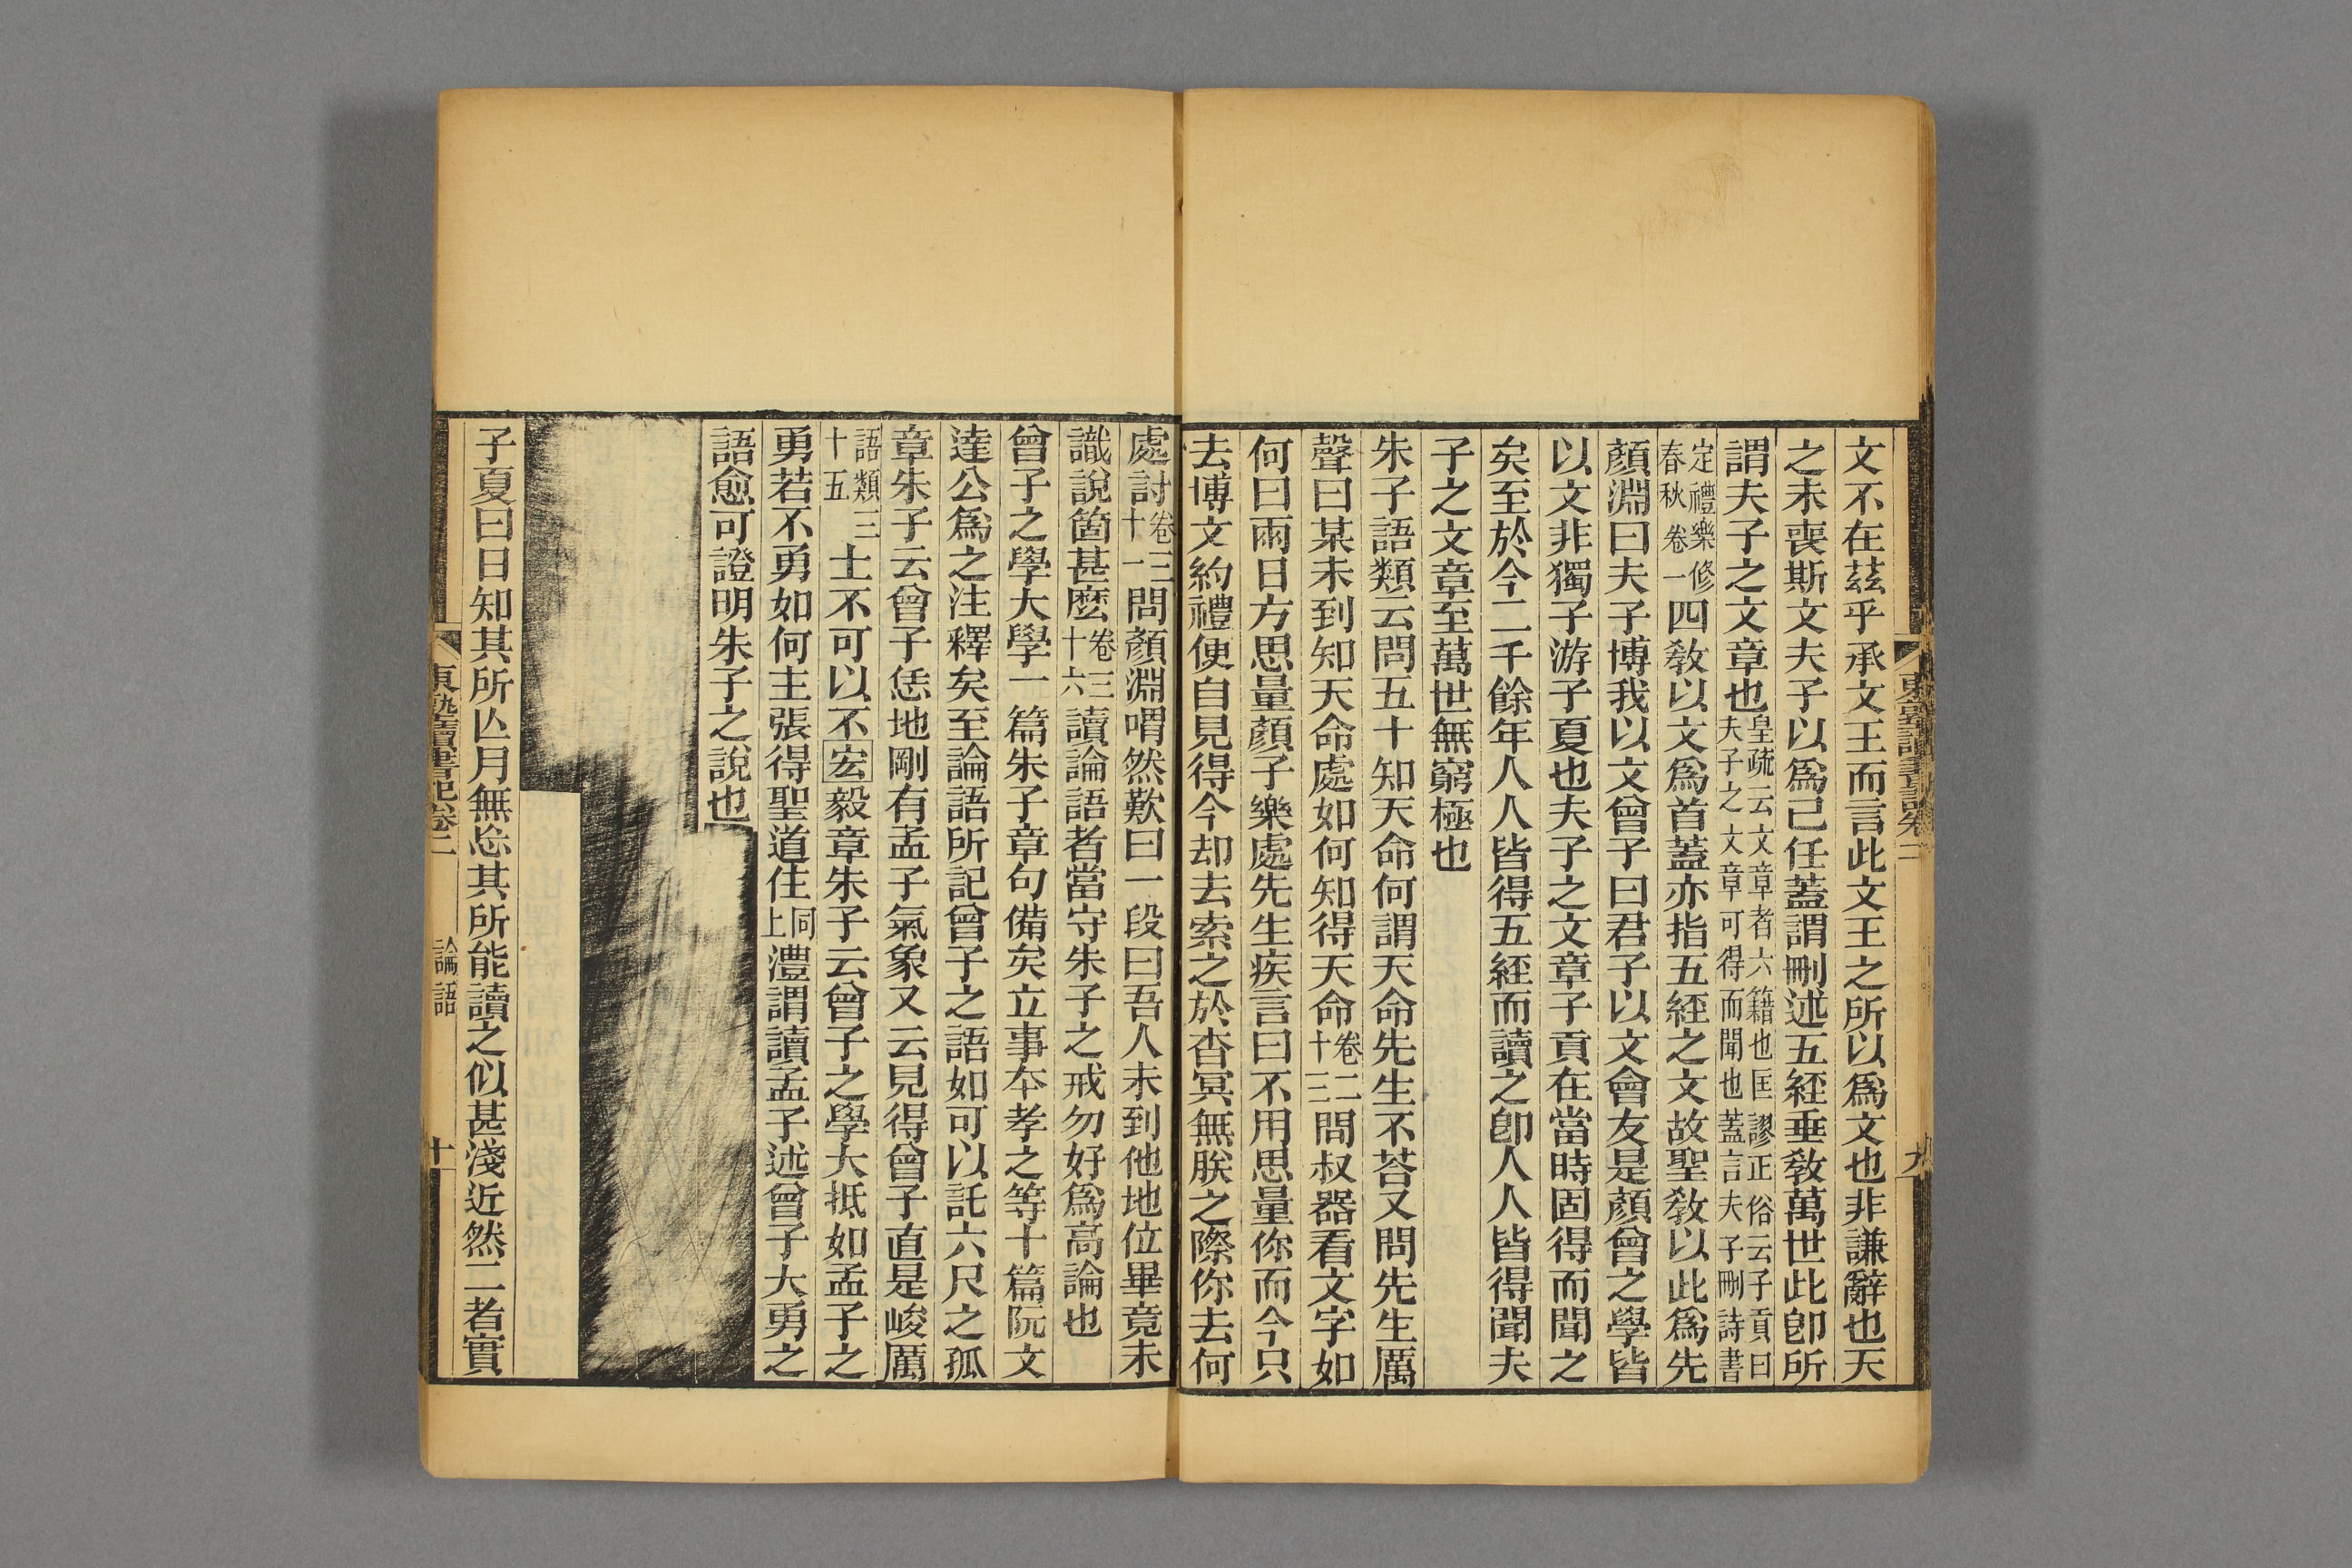 文不在茲乎承文王而言此文王之所以爲文也非謙辭也天
之未喪斯文夫子以爲己任蓋謂刪述五經垂敎萬世此卽所
謂夫子之文章也皇疏云文章者六籍也匡謬正俗云子貢曰夫子之文章可得而聞也蓋言夫子刪詩書
定禮樂修春秋卷一四敎以文爲首蓋亦指五經之文故聖敎以此爲先
顏淵曰夫子博我以文曾子曰君子以文會友是顏曾之學皆
以文非獨子游子夏也夫子之文章子貢在當時固得而聞之
矣至於今二千餘年人人皆得五經而讀之卽人人皆得聞夫
子之文章至萬世無窮極也
朱子語類云問五十知天命何謂天命先生不荅又問先生厲
聲曰某未到知天命處如何知得天命卷二十三問叔器看文字如
何曰兩日方思量顏子樂處先生疾言曰不用思量你而今只
去博文約禮便自見得今却去索之於杳冥無朕之際你去何
處討卷三十一問顏淵喟然歎曰一段曰吾人未到他地位畢竟未
識說箇甚麽卷三十六讀論語者當守朱子之戒勿好爲高論也
曾子之學大學一篇朱子章句備矣立事夲孝之等十篇阮文
達公爲之注釋矣至論語所記曾子之語如可以託六尺之孤
章朱子云曾子恁地剛有孟子氣象又云見得曾子直是峻厲
語類三十五士不可以不宏毅章朱子云曾子之學大抵如孟子之
勇若不勇如何主張得聖道住同上澧謂讀孟子述曾子大勇之
語愈可證明朱子之說也
子夏曰日知其所亾月無忘其所能讀之似甚淺近然二者實
東塾讀書記卷二
論語
十
東塾讀書記卷二
九